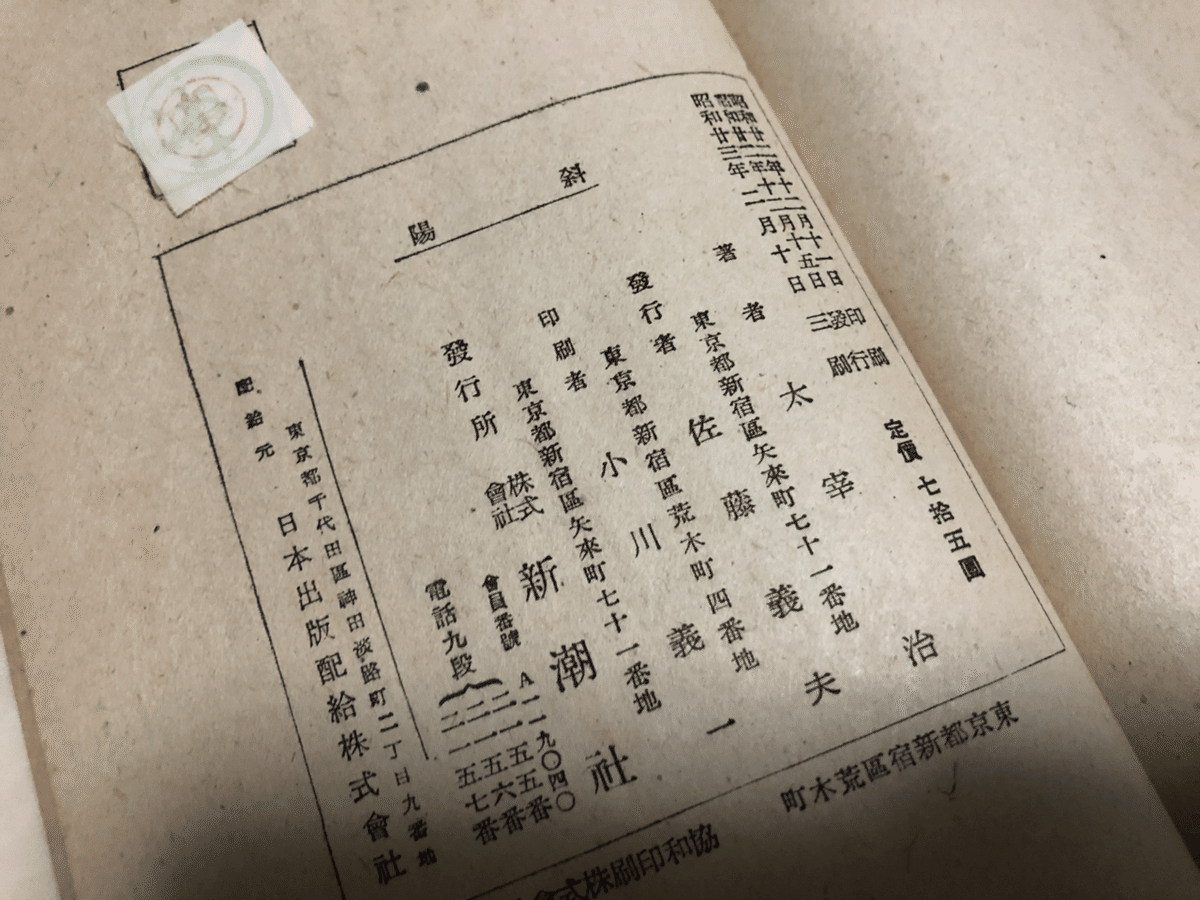 昭和廿二年十二月十一日 印刷
昭和廿二年十二月十五日 發行
昭和廿三年二月十日 三刷
定價 七拾五圓
斜陽
著者 太宰治
東京都新宿區矢來町七十一番地
發行者 佐藤義夫
東京都新宿區荒木町四番地
印刷者 小川義一
東京都新宿區矢來町七十一番地
發行所 株式會社 新潮社
會員番號
電話九段
二一五五番
二一五六番
二一五七番
東京都千代田區神田淡路町二丁目九番地
配給元 日本出版配給株式會社
東京都新宿區荒木町
協和印刷株式會